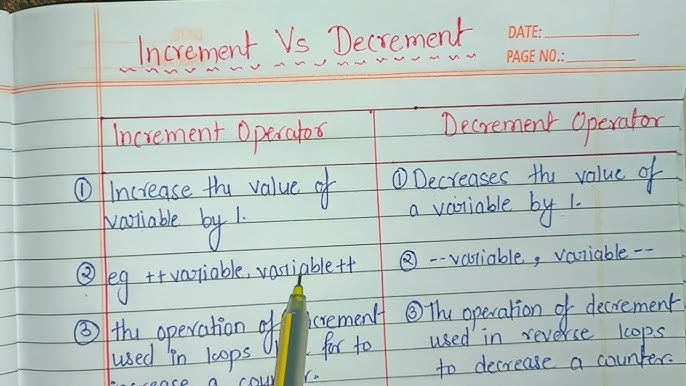 Increment Vs Decrement
DATE:
PAGE NO.:
Increment Operator
① Increase the value of
variable by 1.
② eg ++variable, variable++
③ the operation of
used in loops for to
a
Decrement Operator
① Decreases the value of
a variable by 1.
② --variable, variable--
③ The operation of decrement
used in reverse loops
to decrease a counter.